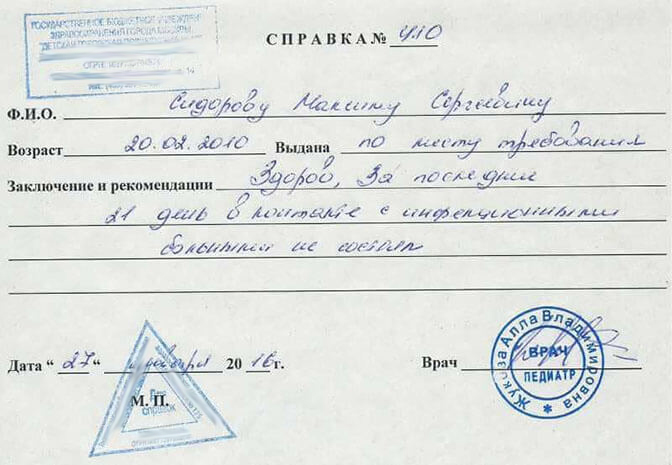 ГОСУДАРСТВЕННОЕ БЮДЖЕТНОЕ УЧРЕЖДЕНИЕ
ЗДРАВООХРАНЕНИЯ ГОРОДА МОСКВЫ
ДЕТСКАЯ ГОРОДСКАЯ
СПРАВКА №
Ф.И.О. Сидорову Максиму Сергеевичу
Возраст 20.02.2010 Выдана по месту требования
Заключение и рекомендации Здоров, За последние
21 день в контакте с инфекционными
больными не состоял
Дата “ 27 “ 2016 г. Врач
М. П.
Для справок
Жукова Алла Владимировна
ВРАЧ
ПЕДИАТР